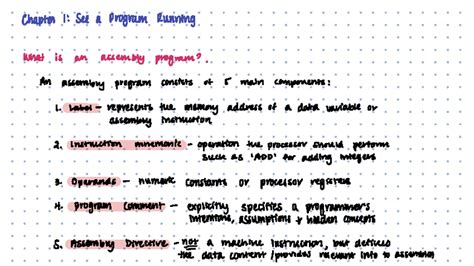 Chapter 1: See a Program Running
What is an assembly program?
An assembly program consists of 5 main components:
1. Label - represents the memory address of a data variable or
assembly instruction
2. Instruction mnemonic - operation the processor should perform
such as 'ADD' for adding integers
3. Operands - numeric constants or processor registers
4. Program Comment - explicitly specifies a programmer's
intentions, assumptions + hidden concepts
5. Assembly Directive - not a machine instruction, but defines
the data content / provides relevant info to assembler